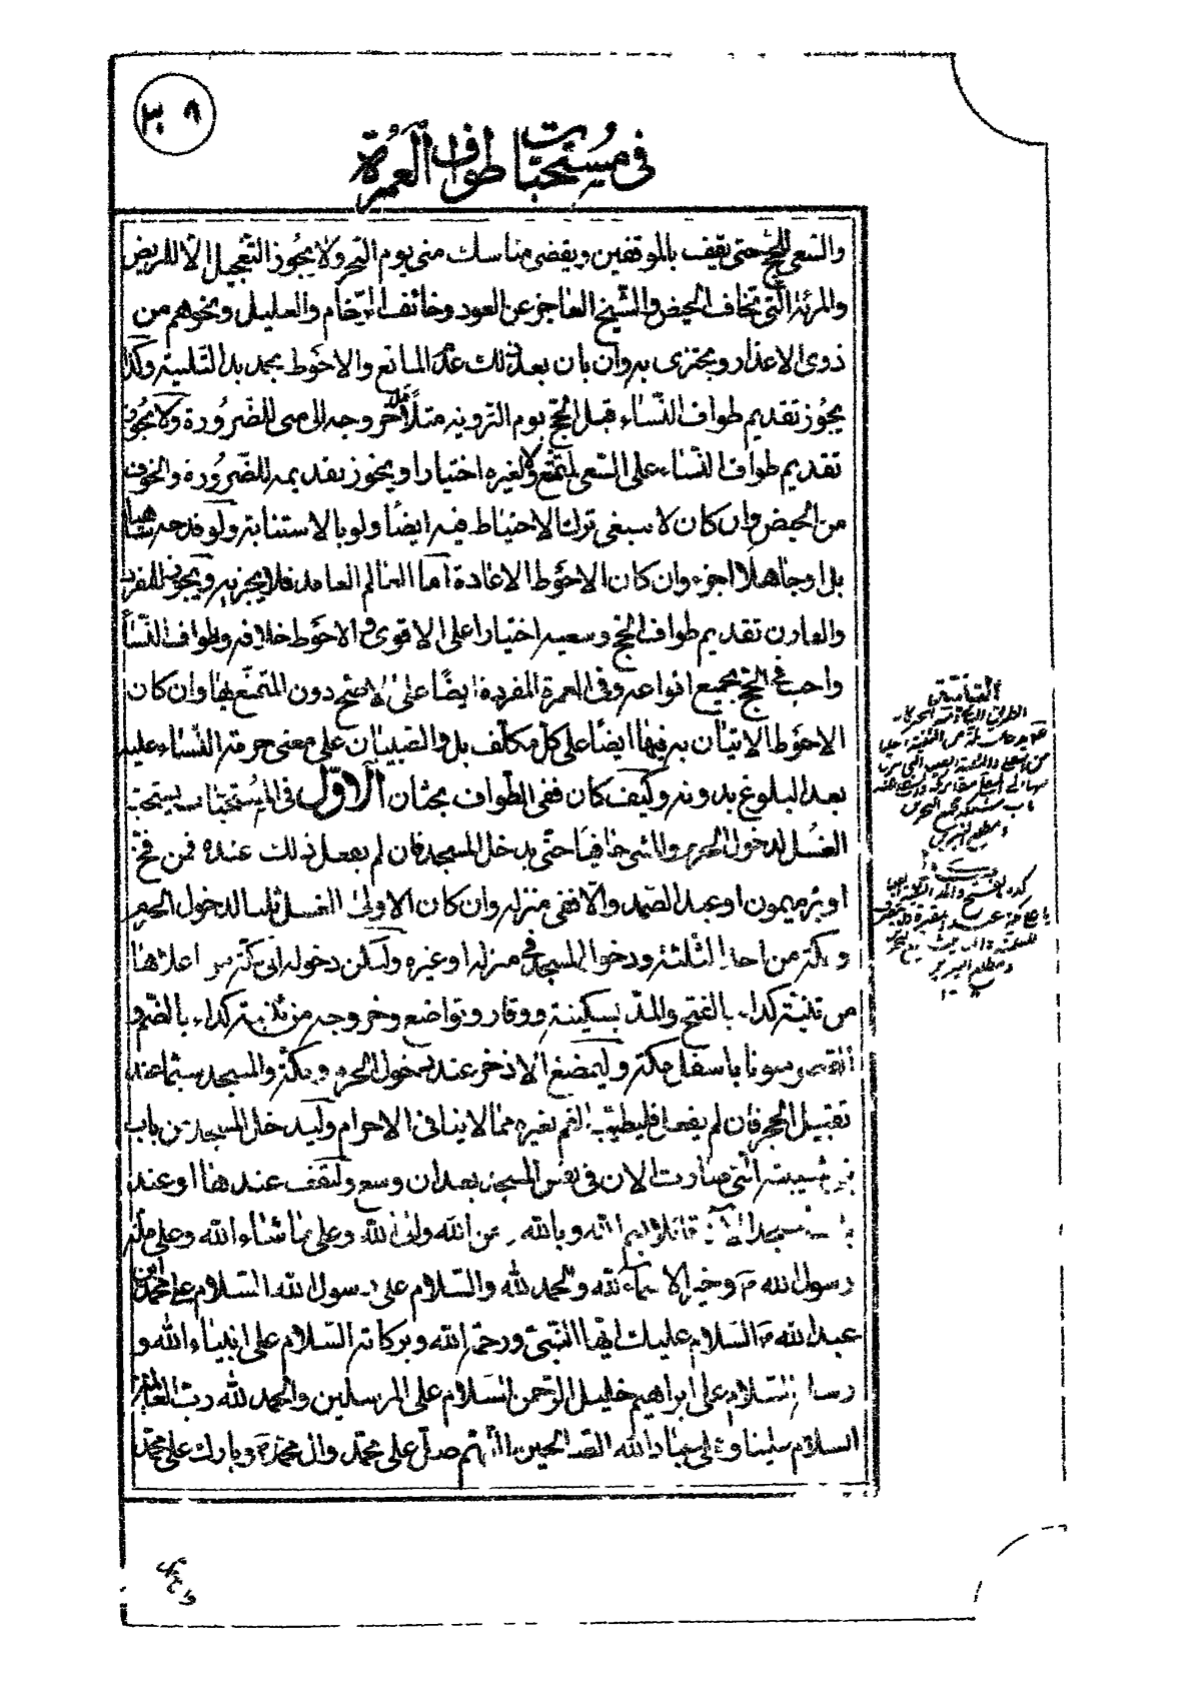 ٣٠٩
فى مستحبات طواف العمرة
والسعى للحج حتى يقف بالموقفين ويقضى مناسك منى يوم النحر ولا يجوز التعجيل الا للمريض
والمرئة التى تخاف الحيض والشيخ العاجز عن العود وخائف الزحام والعليل ونحوهم من
ذوى الاعذار ويجتزى به وان بان بعد ذلك عدم المانع والاحوط تجديد التلبية وكذا
يجوز تقديم طواف النساء قبل الحج يوم التروية مثلا خروجه الى منى للضرورة ولا يجوز
تقديم طواف النساء على السعى لمتمتع ولا لغيره اختيارا ويجوز تقديمه للضرورة والخوف
من الحيض وان كان لا ينبغى ترك الاحتياط فيه ايضا ولو بالاستنابة ولو قدمه
بل او جاهلا اجزء وان كان الاحوط الاعادة اما العالم العامد فلا يجزيه ويجوز للمفرد
والقارن تقديم طواف الحج وسعيه اختيارا على الاقوى والاحوط خلافه وطواف النساء
واجب فى الحج بجميع انواعه وفى العمرة المفردة ايضا على الاصح دون المتمتع بها وان كان
الاحوط الاتيان به فيها ايضا على كل مكلف بل والصبيان على معنى حرمة النساء عليه
بعد البلوغ بدونه وكيف كان ففى الطواف بحثان الاول فى المستحبات يستحب
الغسل لدخول الحرم والمشى حافيا حتى يدخل المسجد فان لم يفعل ذلك عنده فمن فخ
او بئر ميمون او عبد الصمد والا ففى منزله وان كان الاولى الغسل ثلثا لدخول الحرم
ومكة من احد الثلثة ودخول المسجد فى منزله او غيره وليكن دخوله الى مكة من اعلاها
من ثنية كداء بالفتح والمد بسكينة ووقار وتواضع وخروجه من ثنية كداء بالضم و
القصر باسفل مكة وليمضغ الاذخر عند دخول الحرم ومكة والمسجد سيما عند
تقبيل الحجر فان لم يفعل فليطيب الفم بغيره مما لا ينافى الاحرام وليدخل المسجد من باب
بنى شيبة التى صارت الان فى نفس المسجد بعد ان وسع وليقف عندها او عند
باب المسجد الان قائلا بسم الله وبالله ومن الله والى الله وعلى ما شاء الله وعلى ملة
رسول الله ص وخير الاسماء لله والحمد لله والسلام على رسول الله السلام على محمد ابن
عبد الله ص السلام عليك ايها النبى ورحمة الله وبركاته السلام على انبياء الله و
رسله السلام على ابراهيم خليل الرحمن السلام على المرسلين والحمد لله رب العالمين
السلام علينا وعلى عباد الله الصالحين اللهم صل على محمد وال محمد ص وبارك على محمد
الثنية